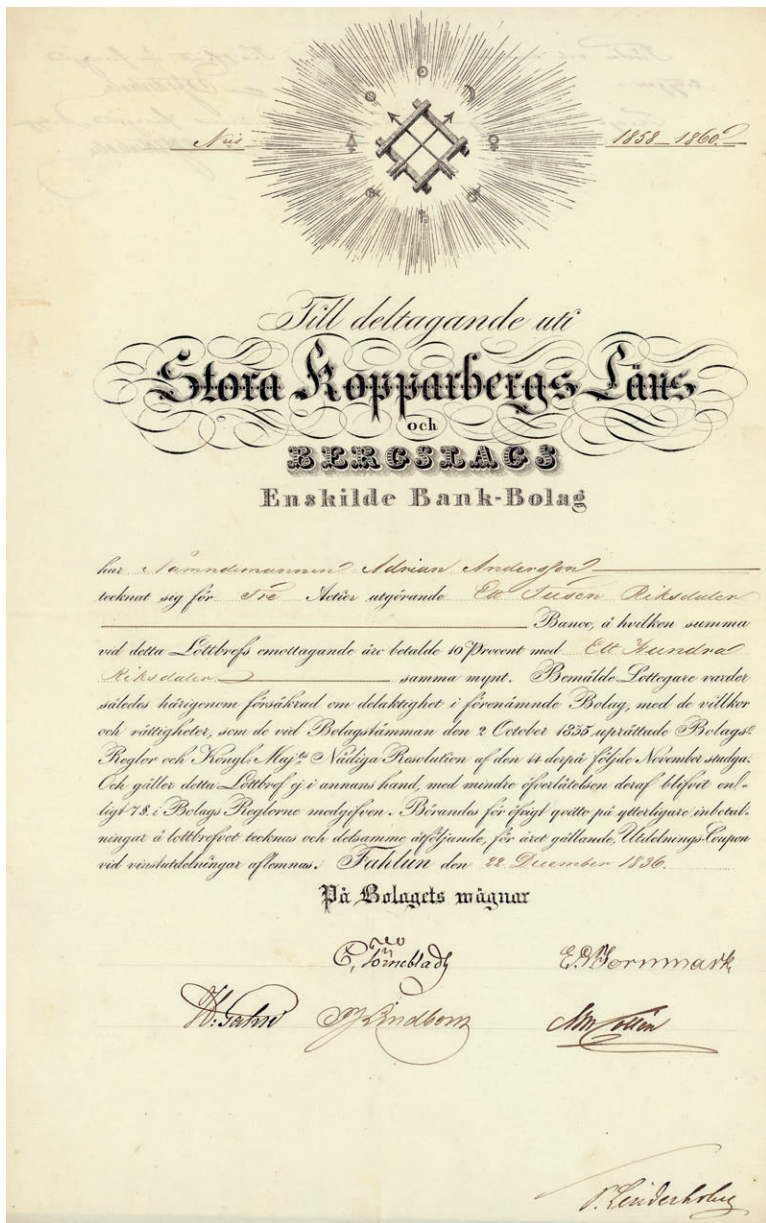 Nris 1858-1860.
Till deltagande uti
Stora Kopparbergs Läns
och
BERGSLAGS
Enskilde Bank-Bolag
har Nämndemannen Adrian Andersson
tecknat sig för Tre Actier utgörande Ett Tusen Riksdaler
Banco, å hvilken summa
vid detta Lottbrefs emottagande äro betalde 10 Procent med Ett Hundra
Riksdaler samma mynt. Bemälde Lottegare varder
således härigenom försäkrad om delaktighet i förenämnde Bolag, med de villkor
och rättigheter, som de vid Bolagsstämman den 2 October 1835 uprättade Bolags-
Reglor och Kongl. Maj:ts Nådiga Resolution af den 14 derpå följde November stadga.
Och gäller detta Lottbref ej i annans hand, med mindre öfverlåtelsen deraf blifvit en-
ligt 7 §. i Bolags Reglorne medgifven. Börandes för öfrigt qvitto på ytterligare inbetal-
ningar å lottbrefvet tecknas och detsamme åtföljande, för året gällande, Utdelnings-Coupon
vid vinstutdelningar aflemnas. Fahlun den 22 December 1836.
På Bolagets wägnar
C, Törneblad E. Bornmark
H: Gahn Lindbom